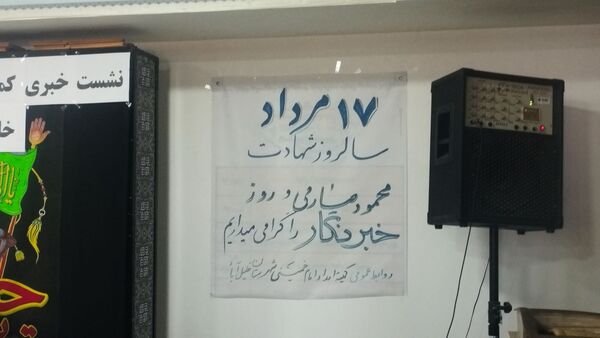 نشست خبری کم
خا
۱۷ مرداد
سالروز شهادت
محمود صارمی و روز
خبرنگار را گرامی میداریم
روابط عمومی کمیته امداد امام خمینی شهرستان خلیل آباد